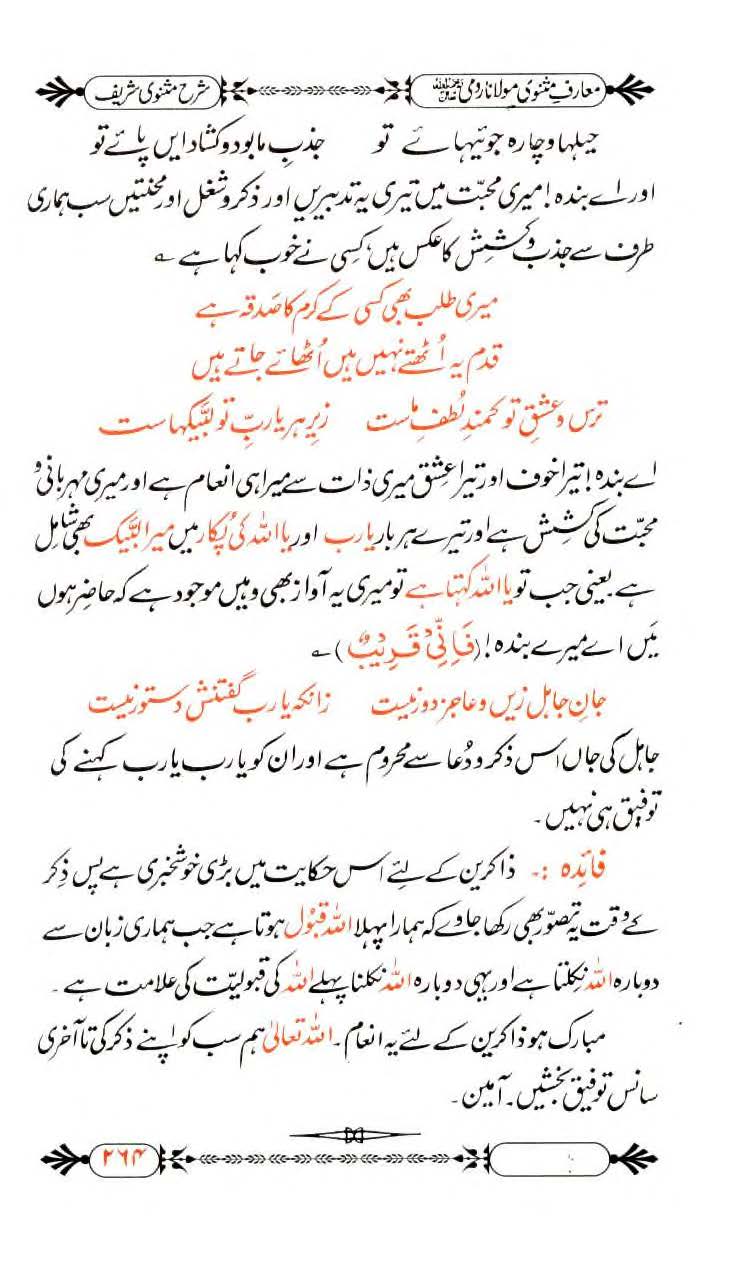 معارفِ مثنوی مولانا رومی رحمۃ اللہ تعالیٰ علیہ شرح مثنوی شریف
حیلہا و چارہ جوئیہائے تو جذبِ ما بود و کشاد ایں پائے تو
اور اے بندہ! میری محبّت میں تیری یہ تدبیریں اور ذکر و شغل اور محنتیں سب ہماری
طرف سے جذب و کشِش کا عکس ہیں، کسی نے خوب کہا ہے ؎
میری طلب بھی کسی کے کرم کا صَدقہ ہے
قدم یہ اُٹھتے نہیں ہیں اُٹھائے جاتے ہیں
ترس و عشقِ تو کمندِ لُطفِ ماست زیرِ ہر یاربِّ تو لبَّیکہاست
اے بندہ! تیرا خوف اور تیرا عشق میری ذات سے میرا ہی انعام ہے اور میری مہربانی و
محبّت کی کشِش ہے اور تیرے ہر بار یارب اور یا اللہ کی پُکار میں میرا لبَّیک بھی شامِل
ہے یعنی جب تو یا اللہ کہتا ہے تو میری یہ آواز بھی وہیں موجود ہے کہ حاضِر ہوں
مَیں اے میرے بندہ! (فَاِنِّیْ قَرِیْبٌ) ؎
جانِ جاہل زیں دعا جز دور نیست زانکہ یارب گفتنش دستور نیست
جاہل کی جاں اس ذکر و دُعا سے محروم ہے اور ان کو یارب یارب کہنے کی
توفیق ہی نہیں۔
فائدہ :۔ ذاکرین کے لئے اس حکایت میں بڑی خوشخبری ہے پس ذِکر
کے وقت یہ تصوّر بھی رکھا جاوے کہ ہمارا پہلا اللہ قبُول ہوتا ہے جب ہماری زبان سے
دوبارہ اللہ نِکلتا ہے اور یہی دوبارہ اللہ نکلنا پہلے اللہ کی قبولیّت کی علامت ہے۔
مبارک ہو ذاکرین کے لئے یہ انعام۔ اللہ تعالیٰ ہم سب کو اپنے ذکر کی تا آخری
سانس توفیق بخشیں۔ آمین۔
۲۶۴